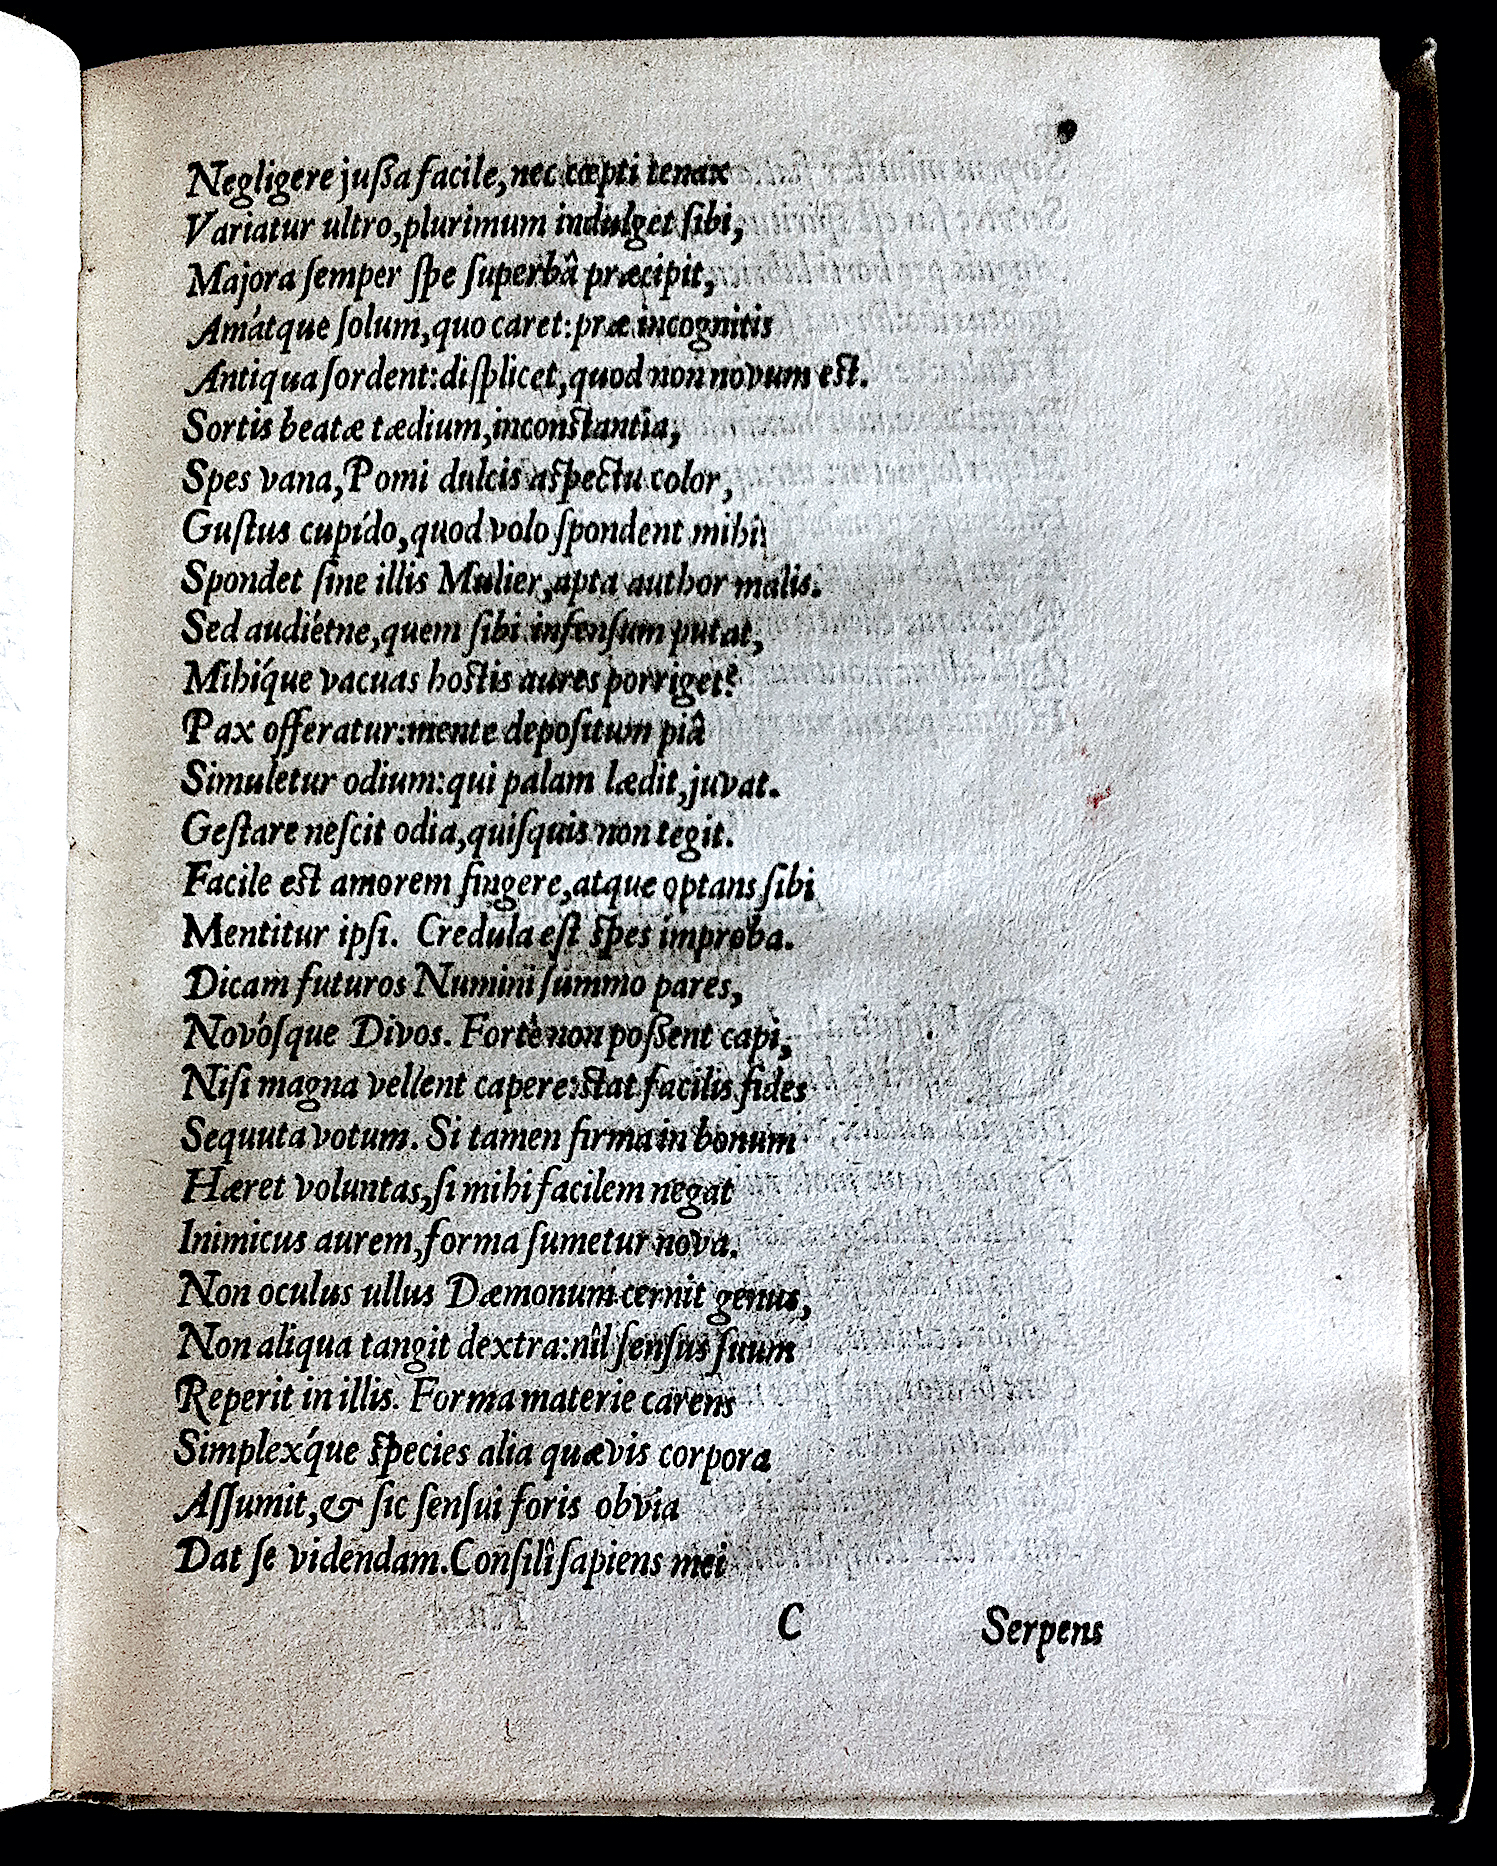 Negligere juſſa facile, nec cœpti tenax
Variatur ultro, plurimum indulget ſibi,
Majora ſemper ſpe ſuperbâ præcipit,
Amátque ſolum, quo caret: præ incognitis
Antiqua ſordent: diſplicet, quod non novum est.
Sortis beatæ tædium, inconstantia,
Spes vana, Pomi dulcis aſpectu color,
Guſtus cupído, quod volo ſpondent mihi
Spondet ſine illis Mulier, apta author malis.
Sed audiétne, quem ſibi infenſum putat,
Mihíque vacuas hostis aures porriget?
Pax offeratur: mente depoſitum piâ
Simuletur odium: qui palam lædit, juvat.
Geſtare neſcit odia, quiſquis non tegit.
Facile est amorem fingere, atque optans ſibi
Mentitur ipſi. Credula eſt ſpes improba.
Dicam futuros Numini ſummo pares,
Novóſque Divos. Fortè non poſſent capi,
Niſi magna vellent capere: stat facilis fides
Sequuta votum. Si tamen firma in bonum
Hæret voluntas, ſi mihi facilem negat
Inimicus aurem, forma ſumetur nova.
Non oculus ullus Dæmonum cernit genus,
Non aliqua tangit dextra: nîl ſenſus ſuum
Reperit in illis. Forma materie carens
Simplex́que ſpecies alia quævis corpora
Aſſumit, & ſic ſenſui foris obvia
Dat ſé videndam. Conſilî ſapiens mei
C Serpens